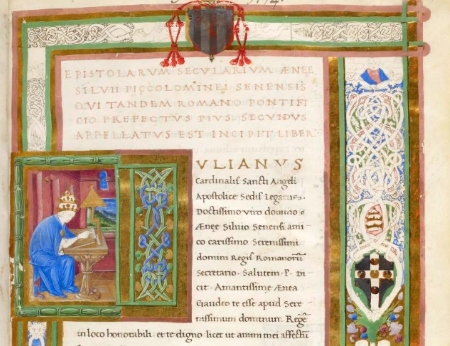 EPISTOLARVM SECVLARIVM ÆNEE
SILVII PICCOLOMINEI SENENSIS
QVI TANDEM ROMANO PONTIFI
CIO PREFECTVS PIVS SECVNDVS
APPELLATVS EST INCIPIT LIBER
IVLIANVS
Cardinalis Sancti Angeli
Apostolice Sedis Legatus.
Doctissimo viro domino e
Æneæ Silvio Senensi ami
co carissimo Serenissimi
domini Regis Romanorum
Secretario. Salutem. P. di
cit. Amantissime Ænea
Gaudeo te esse apud Sere
nissimum dominum Regem
in loco honorabili. et te digno. licet ut animi mei affecti